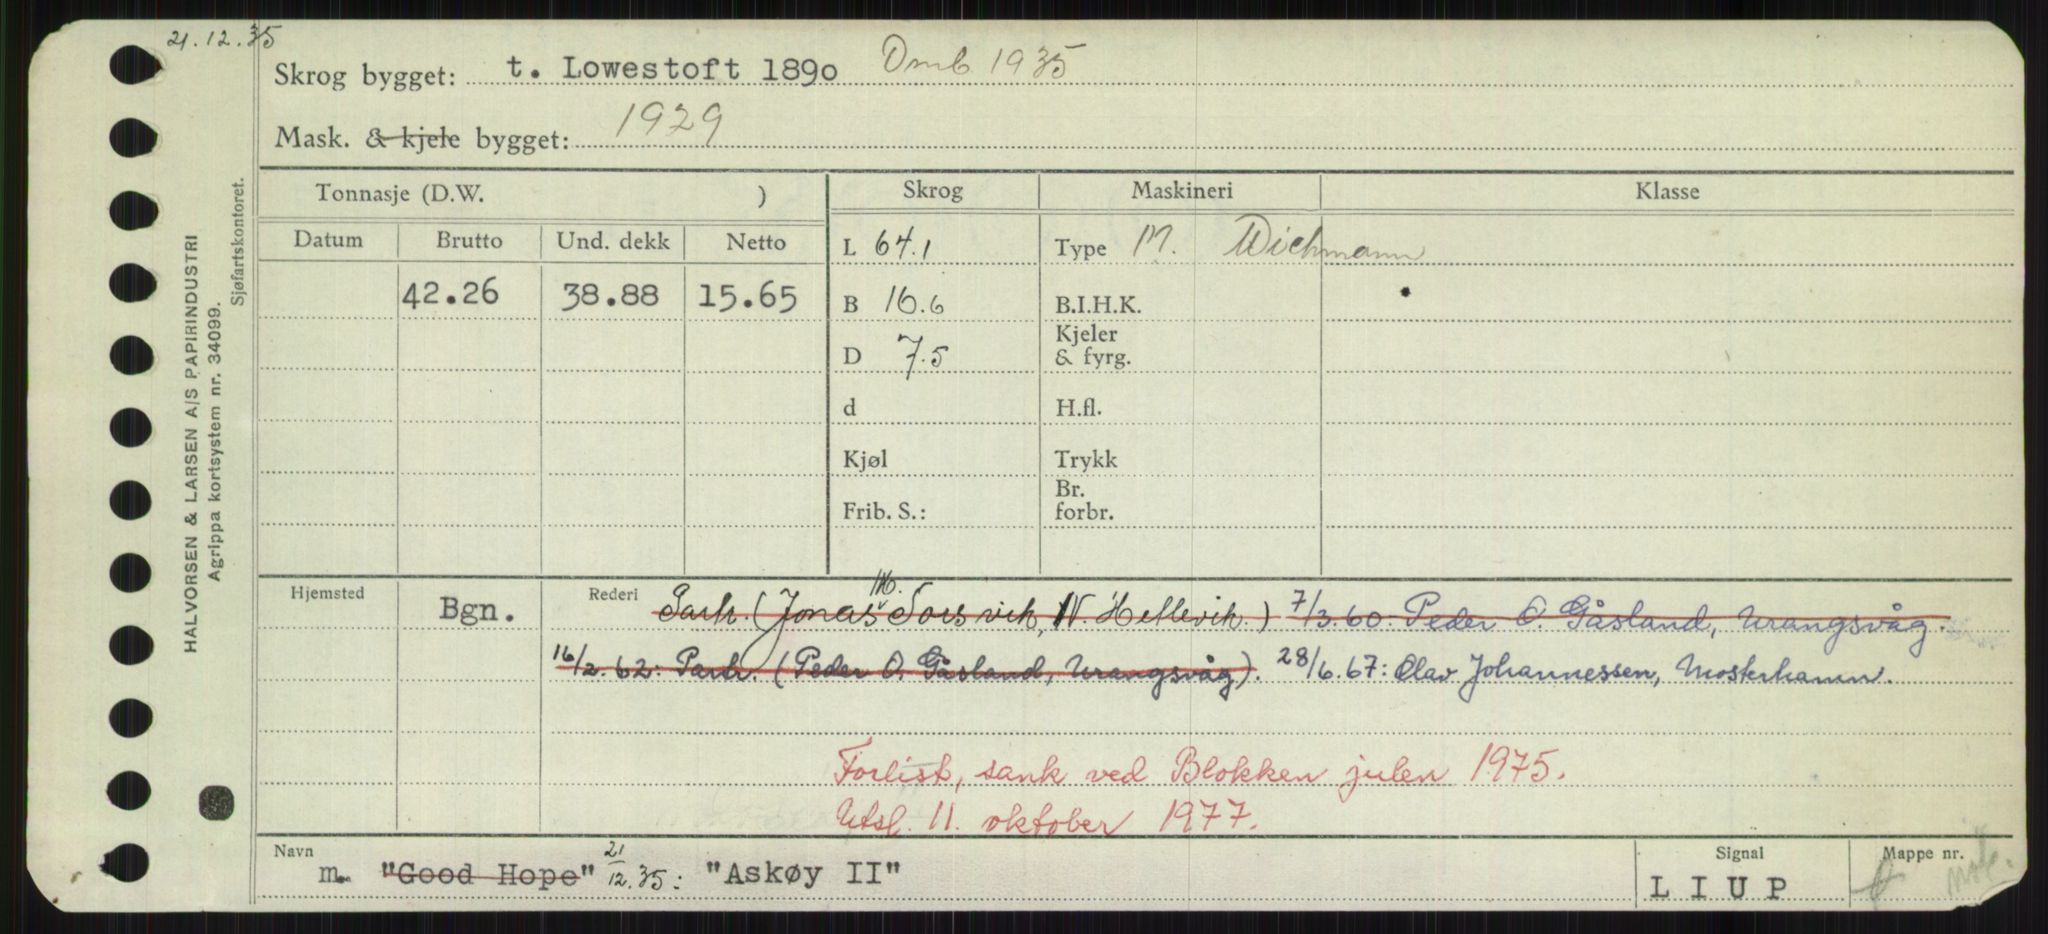 21.12.35
Skrog bygget: t. Lowestoft 1890 Omb. 1935
Mask. & kjele bygget: 1929
HALVORSEN & LARSEN A/S PAPIRINDUSTRI
Agrippa kortsystem nr. 34099.
Sjøfartskontoret.
Tonnasje (D.W. ) Skrog Maskineri Klasse
Datum Brutto Und. dekk Netto L 64.1 Type M. Wichmann
42.26 38.88 15.65 B 16.6 B.I.H.K.
D 7.5 Kjeler & fyrg.
d H.fl.
Kjøl Trykk
Frib. S.: Br. forbr.
Hjemsted Bgn. Rederi Partr. (Jonas M. Torsvik, N. Hellevik.) 7/3.60: Peder O. Gåsland, Urangsvåg.
16/2.62: Partr. (Peder O. Gåsland, Urangsvåg). 28/6.67: Olav Johannessen, Mosterhamn.
Forlist, sank ved Blokken julen 1975.
Utsl. 11. oktober 1977.
Navn m. "Good Hope" 21/12.35: "Askøy II" Signal LIUP Mappe nr.